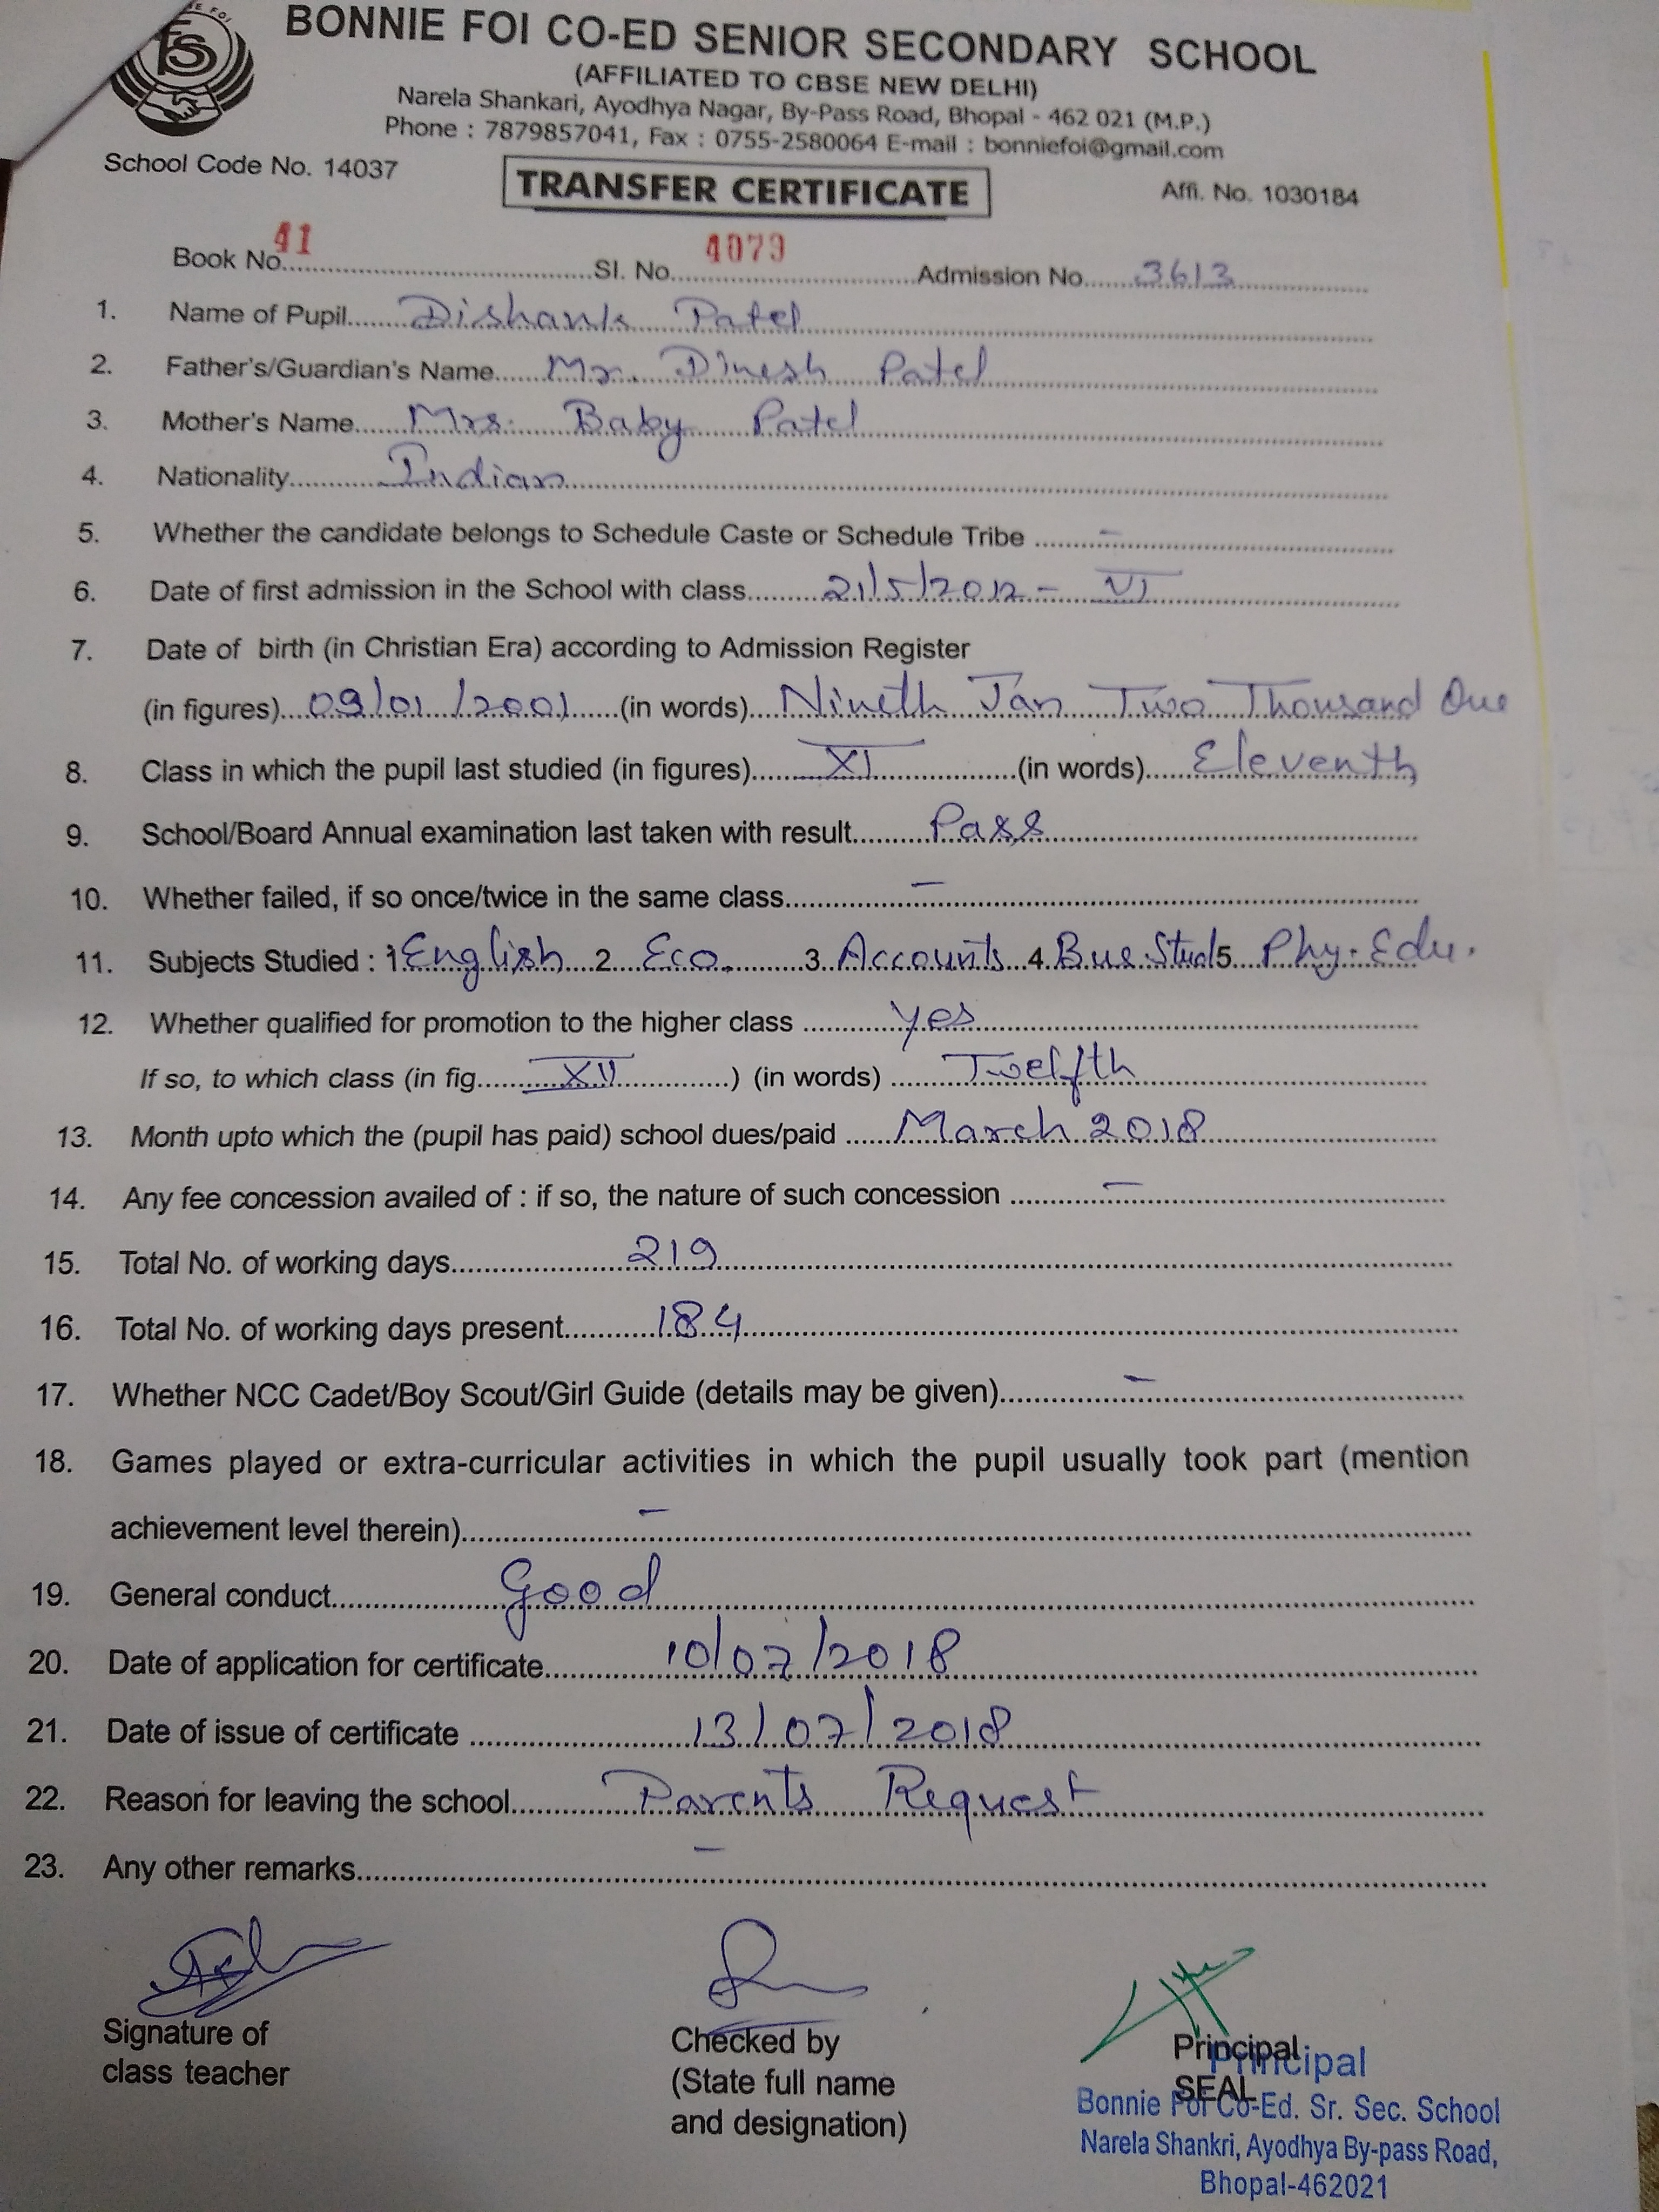 BONNIE FOI CO-ED SENIOR SECONDARY SCHOOL
(AFFILIATED TO CBSE NEW DELHI)
Narela Shankari, Ayodhya Nagar, By-Pass Road, Bhopal - 462 021 (M.P.)
Phone : 7879857041, Fax : 0755-2580064 E-mail : bonniefoi@gmail.com
School Code No. 14037 TRANSFER CERTIFICATE Affi. No. 1030184
Book No. 41 Sl. No. 4079 Admission No. 3613
1. Name of Pupil Dishank Patel
2. Father's/Guardian's Name Mr. Dinesh Patel
3. Mother's Name Mrs. Baby Patel
4. Nationality Indian
5. Whether the candidate belongs to Schedule Caste or Schedule Tribe -
6. Date of first admission in the School with class 21/5/2012 - VI
7. Date of birth (in Christian Era) according to Admission Register
(in figures) 09/01/2001 (in words) Nineth Jan Two Thousand One
8. Class in which the pupil last studied (in figures) XI (in words) Eleventh
9. School/Board Annual examination last taken with result Pass
10. Whether failed, if so once/twice in the same class -
11. Subjects Studied : 1 English 2 Eco. 3 Accounts 4 Bus. Stud 5 Phy. Edu.
12. Whether qualified for promotion to the higher class yes
If so, to which class (in fig. XII ) (in words) Twelfth
13. Month upto which the (pupil has paid) school dues/paid March 2018
14. Any fee concession availed of : if so, the nature of such concession -
15. Total No. of working days 219
16. Total No. of working days present 184
17. Whether NCC Cadet/Boy Scout/Girl Guide (details may be given) -
18. Games played or extra-curricular activities in which the pupil usually took part (mention
achievement level therein) -
19. General conduct Good
20. Date of application for certificate 10/07/2018
21. Date of issue of certificate 13/07/2018
22. Reason for leaving the school Parents Request
23. Any other remarks -
Signature of
class teacher
Checked by
(State full name
and designation)
Principal
SEAL
Principal
Bonnie Foi Co-Ed. Sr. Sec. School
Narela Shankri, Ayodhya By-pass Road,
Bhopal-462021